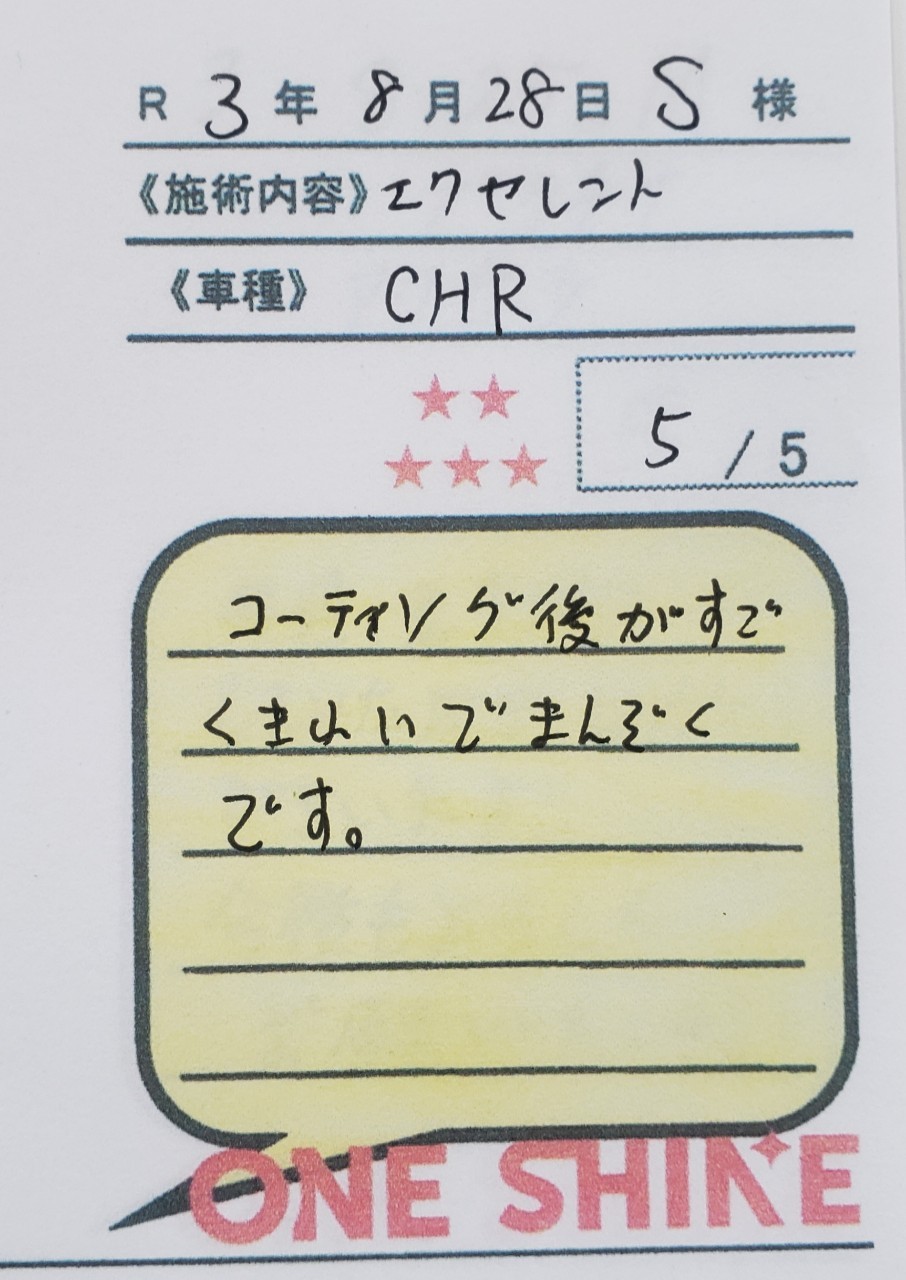 R 3年 8月28日 S 様
《施術内容》エクセレント
《車種》 CHR
5 / 5
コーティング後がすご
くきれいでまんぞく
です。
ONE SHINE